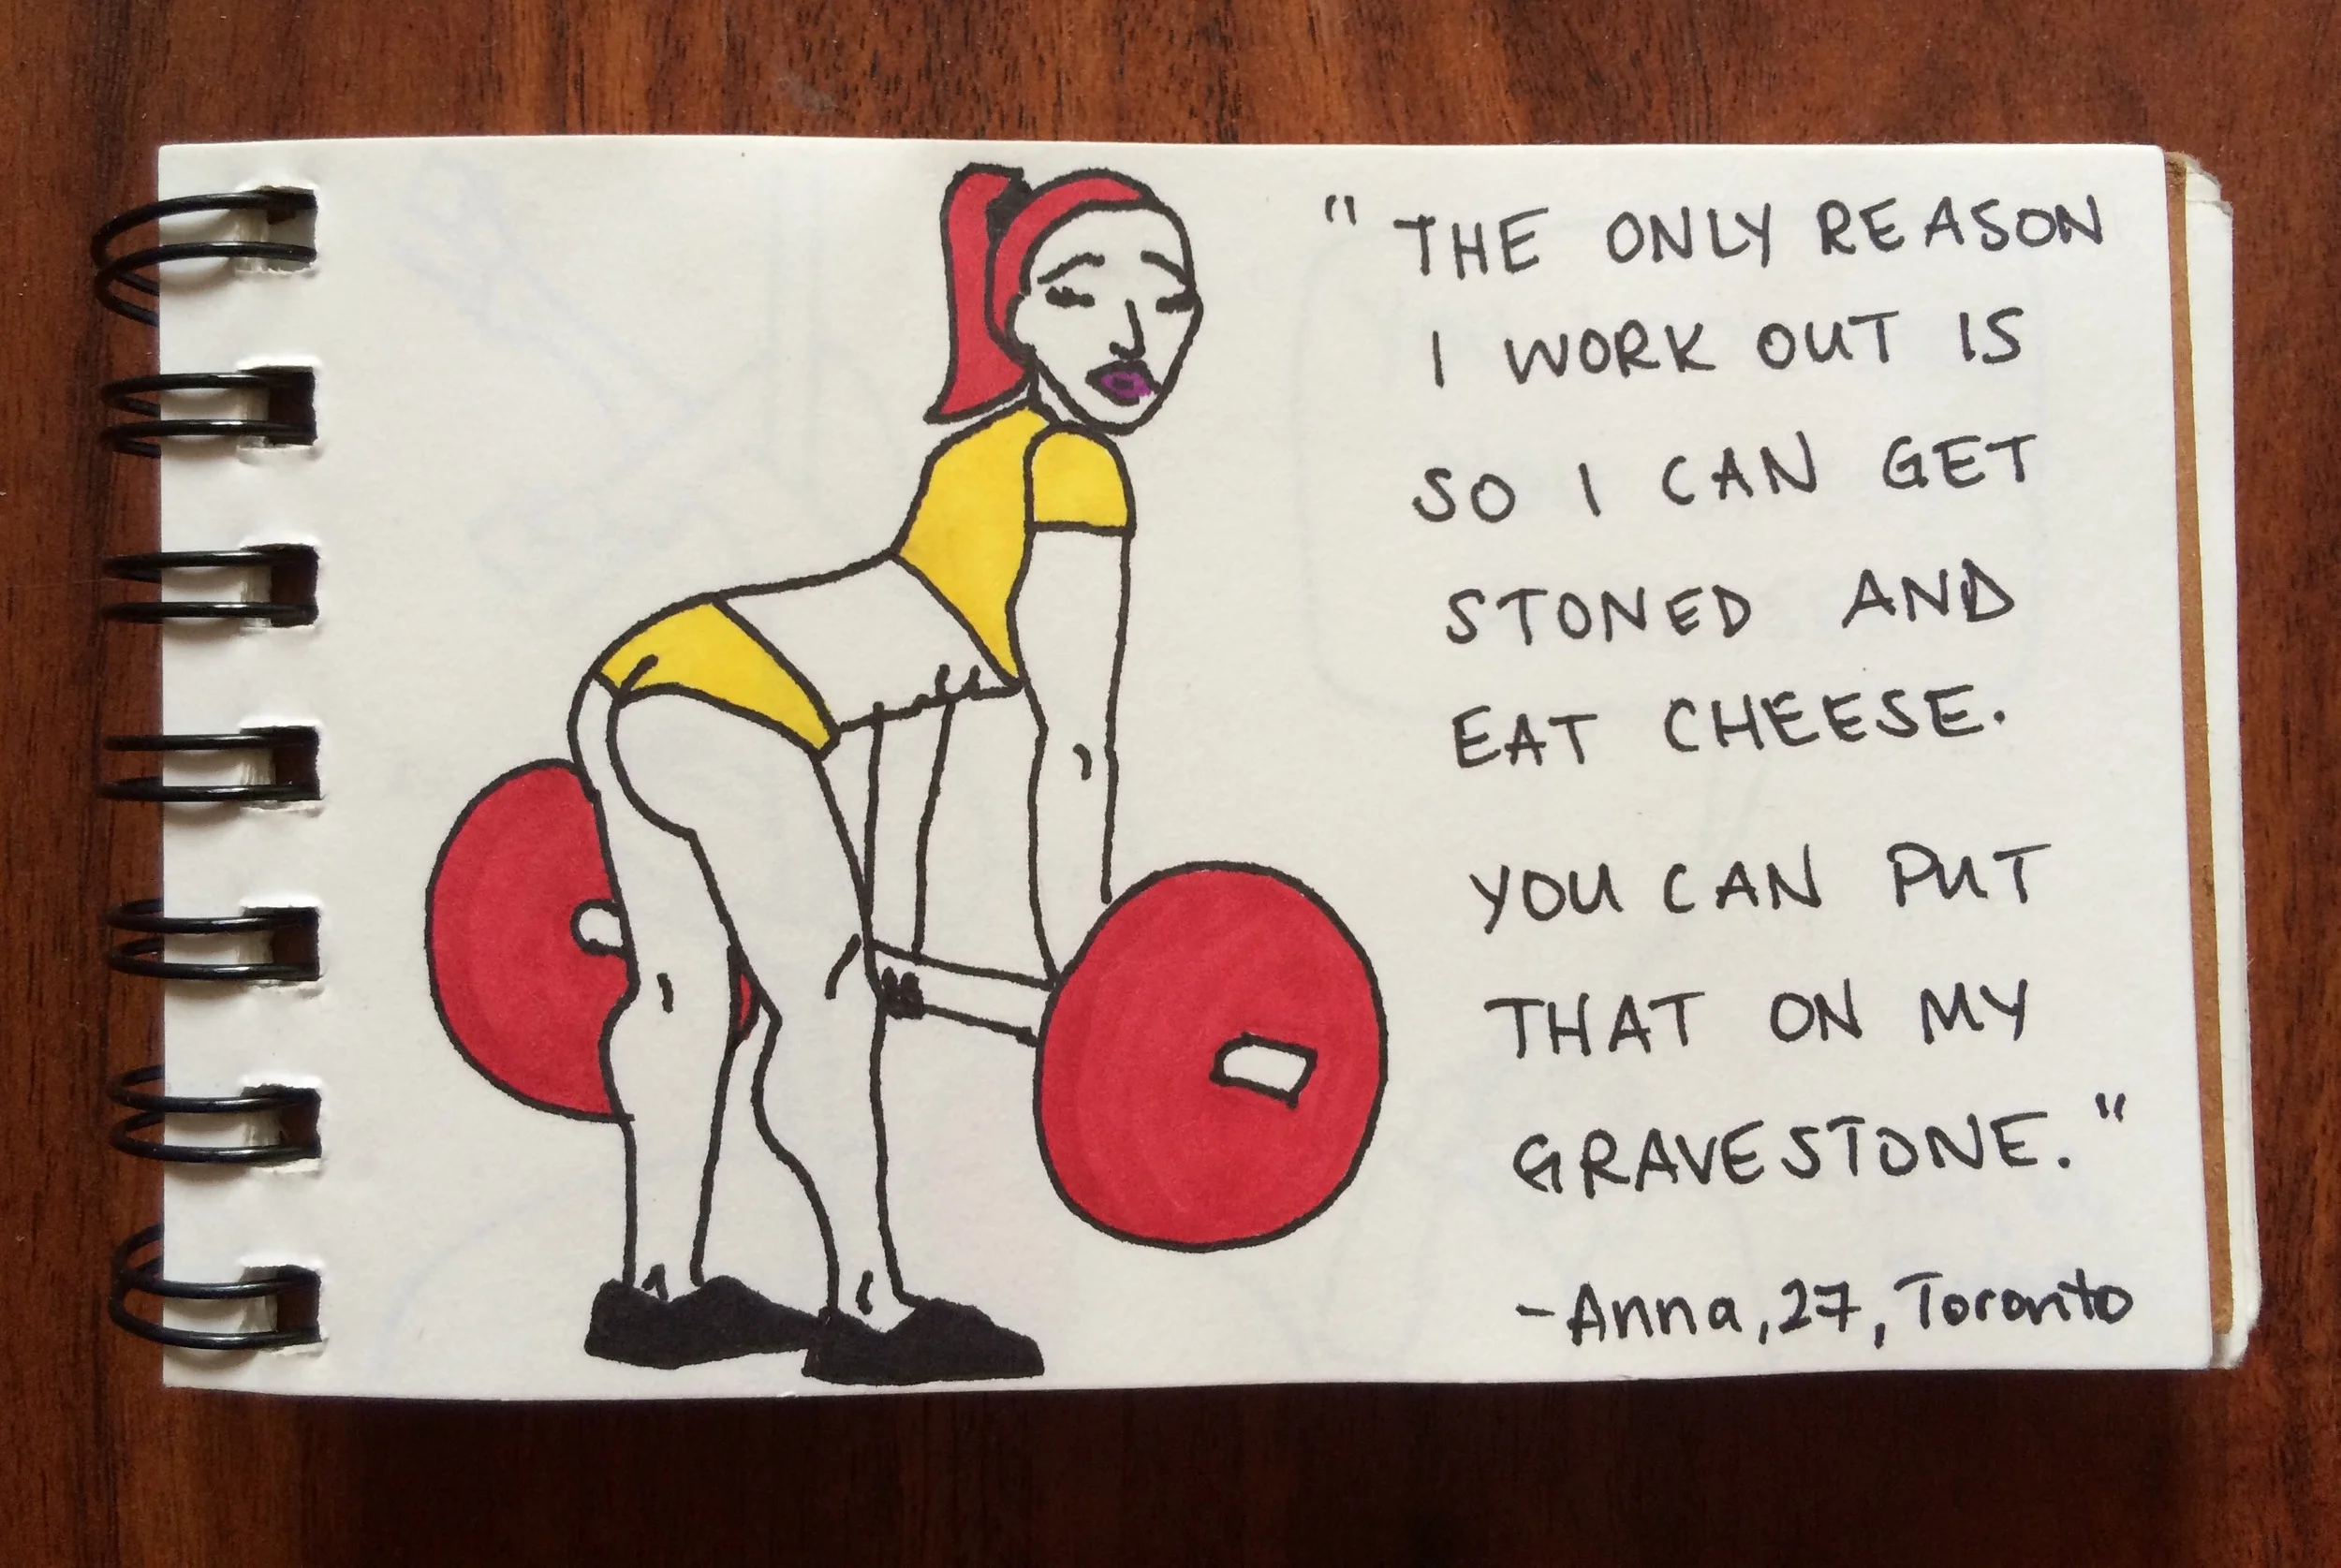 "THE ONLY REASON
I WORK OUT IS
SO I CAN GET
STONED AND
EAT CHEESE.
YOU CAN PUT
THAT ON MY
GRAVESTONE."
-Anna, 27, Toronto